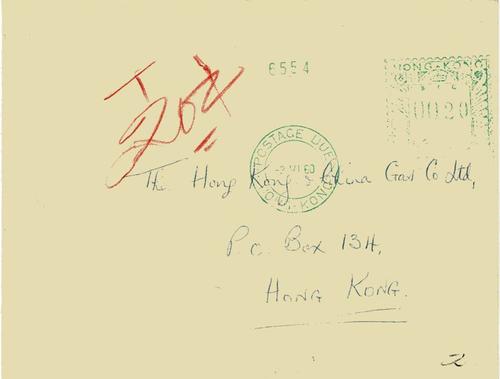 T 20¢
6554
HONG-KONG
0020
POSTAGE DUE
2 VI 60
HONG KONG
The Hong Kong & China Gas Co Ltd,
P.O. Box 134,
HONG KONG.
2